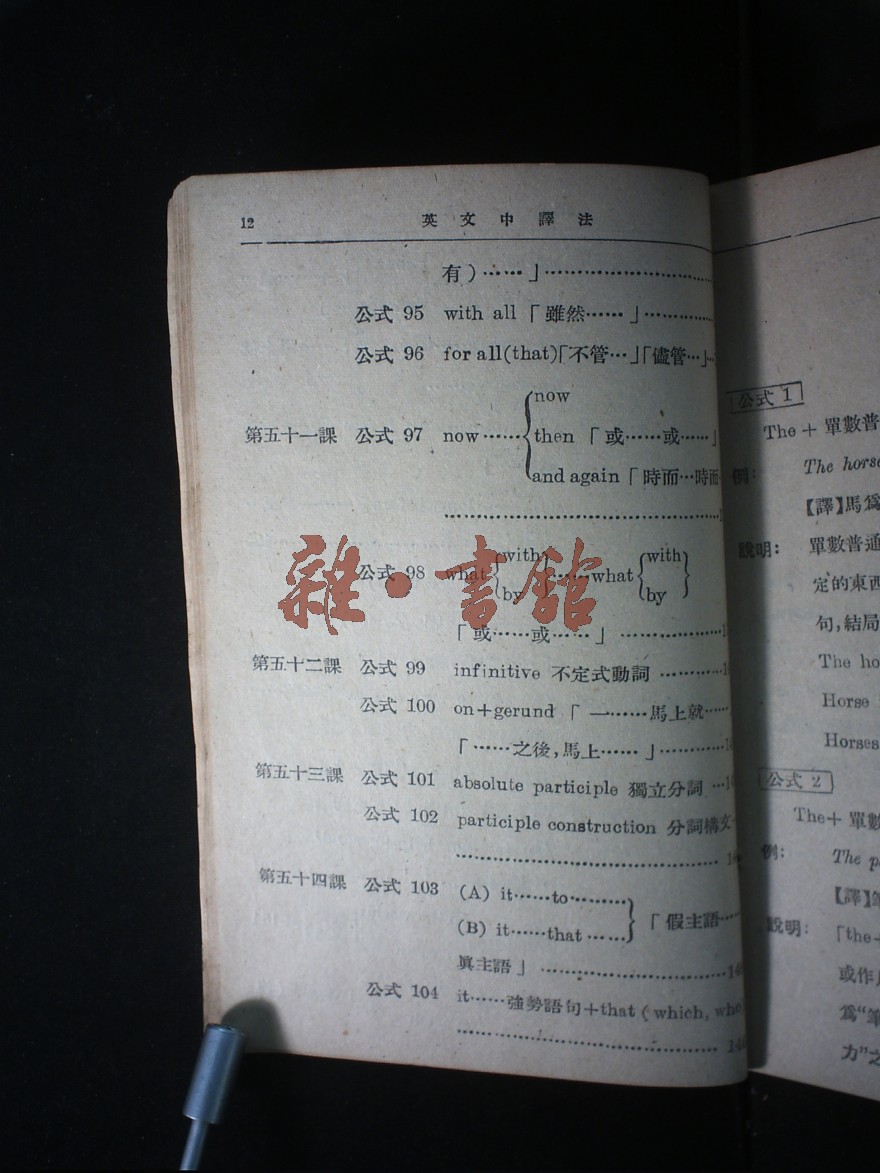 12 英文中譯法
有）……」……
公式 95 with all「雖然……」……
公式 96 for all(that)「不管…」「儘管…」…
now
第五十一課 公式 97 now……then「或……或……」
and again「時而…時而
……
公式 98 what{with by}……what{with by}
「或……或……」……
第五十二課 公式 99 infinitive 不定式動詞……
公式 100 on+gerund「一……馬上就……
「……之後,馬上……」……
第五十三課 公式 101 absolute participle 獨立分詞…
公式 102 participle construction 分詞構文
……
第五十四課 公式 103 (A) it……to……
(B) it……that……「假主語……
眞主語」……
公式 104 it……強勢語句+that (which, who)
……
雜·書館
公式 1
The + 單數普
例: The horse
【譯】馬爲
說明: 單數普通
定的東西
句,結局
The ho
Horse
Horses
公式 2
The+ 單數
例: The p
【譯】筆
說明:「the+
或作
爲“筆
力”之